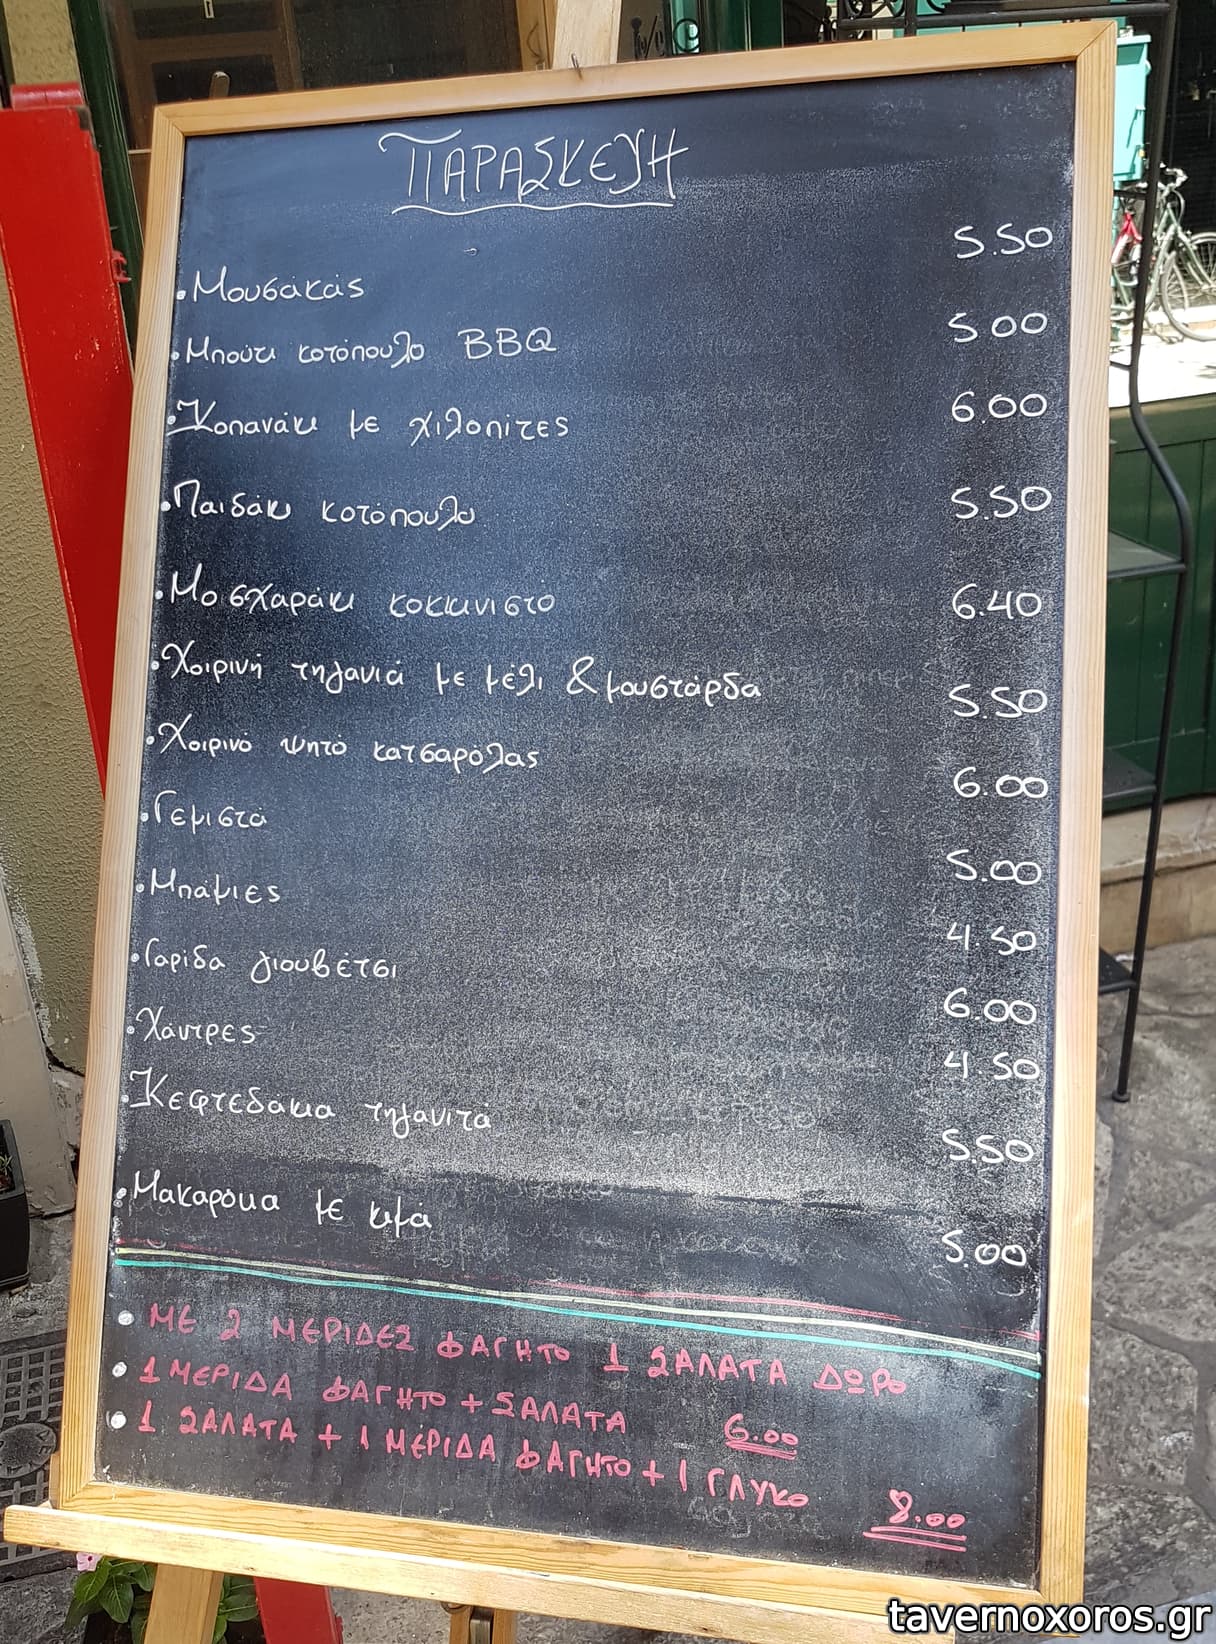 ΠΑΡΑΣΚΕΥΗ
• Μουσακάς 5.50
• Μπούτι κοτόπουλο BBQ 5.00
• Κοπανάκι με χιλοπίτες 6.00
• Παιδάκι κοτόπουλο 5.50
• Μοσχαράκι κοκκινιστό 6.40
• Χοιρινή τηγανιά με μέλι & μουστάρδα 5.50
• Χοιρινό ψητό κατσαρόλας 6.00
• Γεμιστά 5.00
• Μπάμιες 4.50
• Γαρίδα γιουβέτσι 6.00
• Χάντρες 4.50
• Κεφτεδάκια τηγανιτά 5.50
• Μακαρόνια με κιμά 5.00
• ΜΕ 2 ΜΕΡΙΔΕΣ ΦΑΓΗΤΟ 1 ΣΑΛΑΤΑ ΔΩΡΟ
• 1 ΜΕΡΙΔΑ ΦΑΓΗΤΟ + ΣΑΛΑΤΑ 6.00
• 1 ΣΑΛΑΤΑ + 1 ΜΕΡΙΔΑ ΦΑΓΗΤΟ + 1 ΓΛΥΚΟ 8.00
tavernoxoros.gr